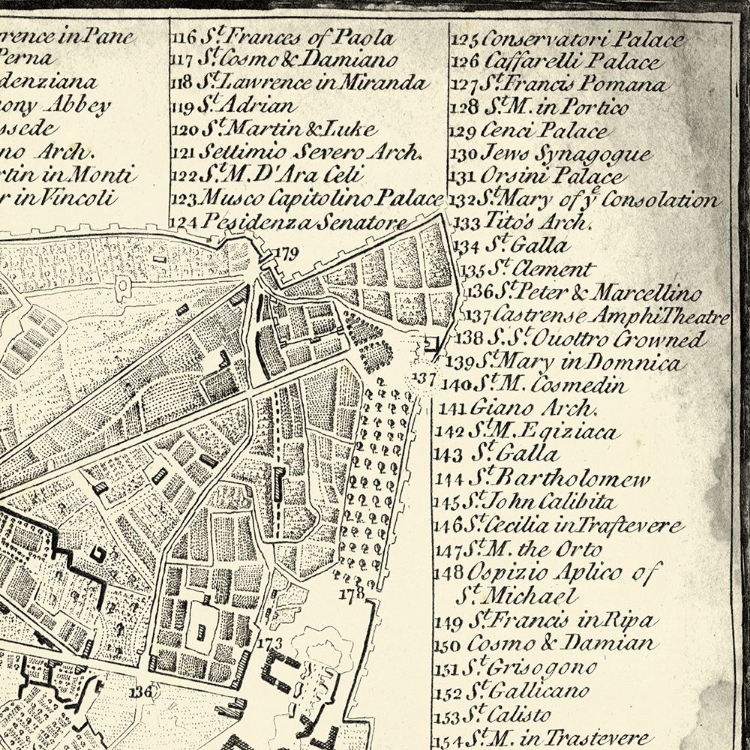 rence in Pane
Perna
denziana
ony Abbey
ssede
no Arch.
rtin in Monti
r in Vincoli
116 St. Frances of Paola
117 St. Cosmo & Damiano
118 St. Lawrence in Miranda
119 St. Adrian
120 St. Martin & Luke
121 Settimio Severo Arch.
122 St. M. D'Ara Celi
123 Musco Capitolino Palace
124 Pesidenza Senatore
125 Conservatori Palace
126 Caffarelli Palace
127 St. Francis Pomana
128 St. M. in Portico
129 Cenci Palace
130 Jews Synagogue
131 Orsini Palace
132 St. Mary of ye Consolation
133 Tito's Arch.
134 St. Galla
135 St. Clement
136 St. Peter & Marcellino
137 Castrense AmphiTheatre
138 S. St. Quottro Crowned
139 St. Mary in Domnica
140 St. M. Cosmedin
141 Giano Arch.
142 St. M. Egiziaca
143 St. Galla
144 St. Bartholomew
145 St. John Calibita
146 St. Cecilia in Trastevere
147 St. M. the Orto
148 Ospizio Aplico of
St. Michael
149 St. Francis in Ripa
150 Cosmo & Damian
151 St. Grisogono
152 St. Gallicano
153 St. Calisto
154 St. M. in Trastevere
179
137
178
173
136